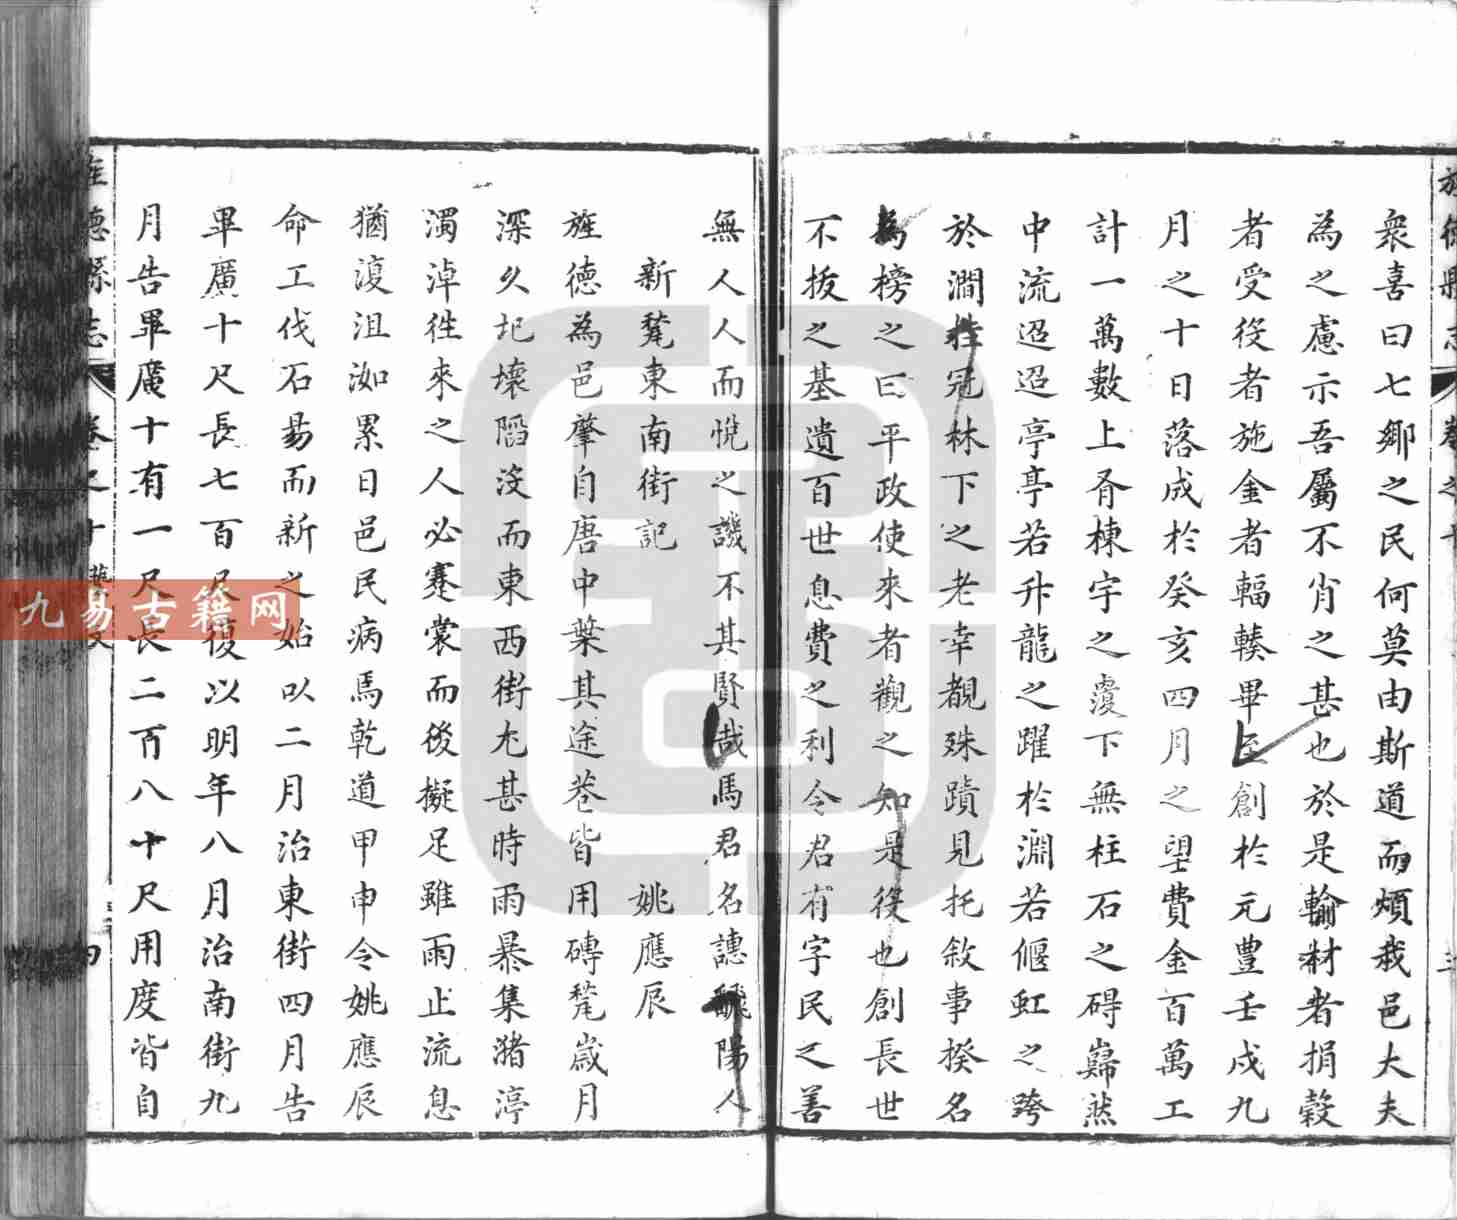 衆喜曰七鄉之民何莫由斯道而煩我邑大夫
為之慮示吾屬不肖之甚也於是輸材者捐穀
者受役者施金者輻輳畢至創於元豐壬戌九
月之十日落成於癸亥四月之望費金百萬工
計一萬數上脊棟宇之覆下無柱石之碍巋然
中流迢迢亭亭若升龍之躍於淵若偃虹之跨
於澗桂冠林下之老幸覩殊蹟見托敘事揆名
為榜之曰平政使來者觀之知是役也創長世
不拔之基遺百世息費之利令君有字民之善
無人人而悅之譏不其賢哉馬君名譓 陽人
新甃東南街記 姚應辰
旌德為邑肇自唐中葉其途巷皆用磚甃歲月
深久圮壞陷没而東西街尤甚時雨暴集猪渟
濁淖徃來之人必蹇裳而後擬足雖雨止流息
猶澓沮洳累日邑民病焉乾道甲申令姚應辰
命工伐石易而新之始以二月治東街四月告
畢廣十尺長七百尺復以明年八月治南街九
月告畢廣十有一尺長二百八十尺用度皆自
旌德縣志 卷之十 藝文 四
九易古籍网